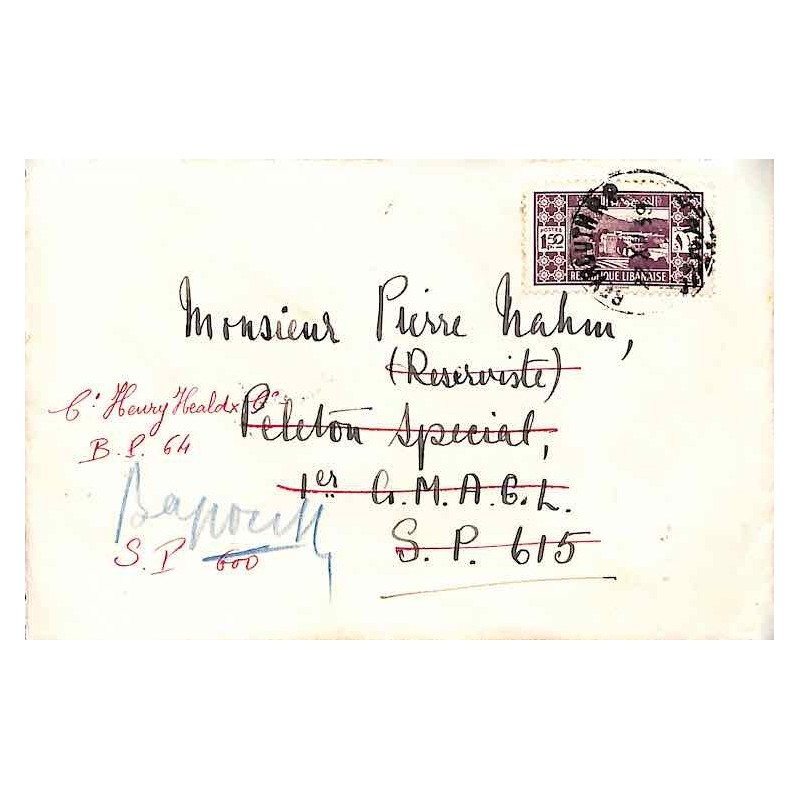 POSTES
1 50
REPUBLIQUE LIBANAISE
BEYROUTH R.P
Monsieur Pierre Nahm,
(Reserviste)
Peleton Special,
1er G.M.A.C.L.
S.P. 615
Cº Henry Heald & Cº
B.P. 64
S.P 600